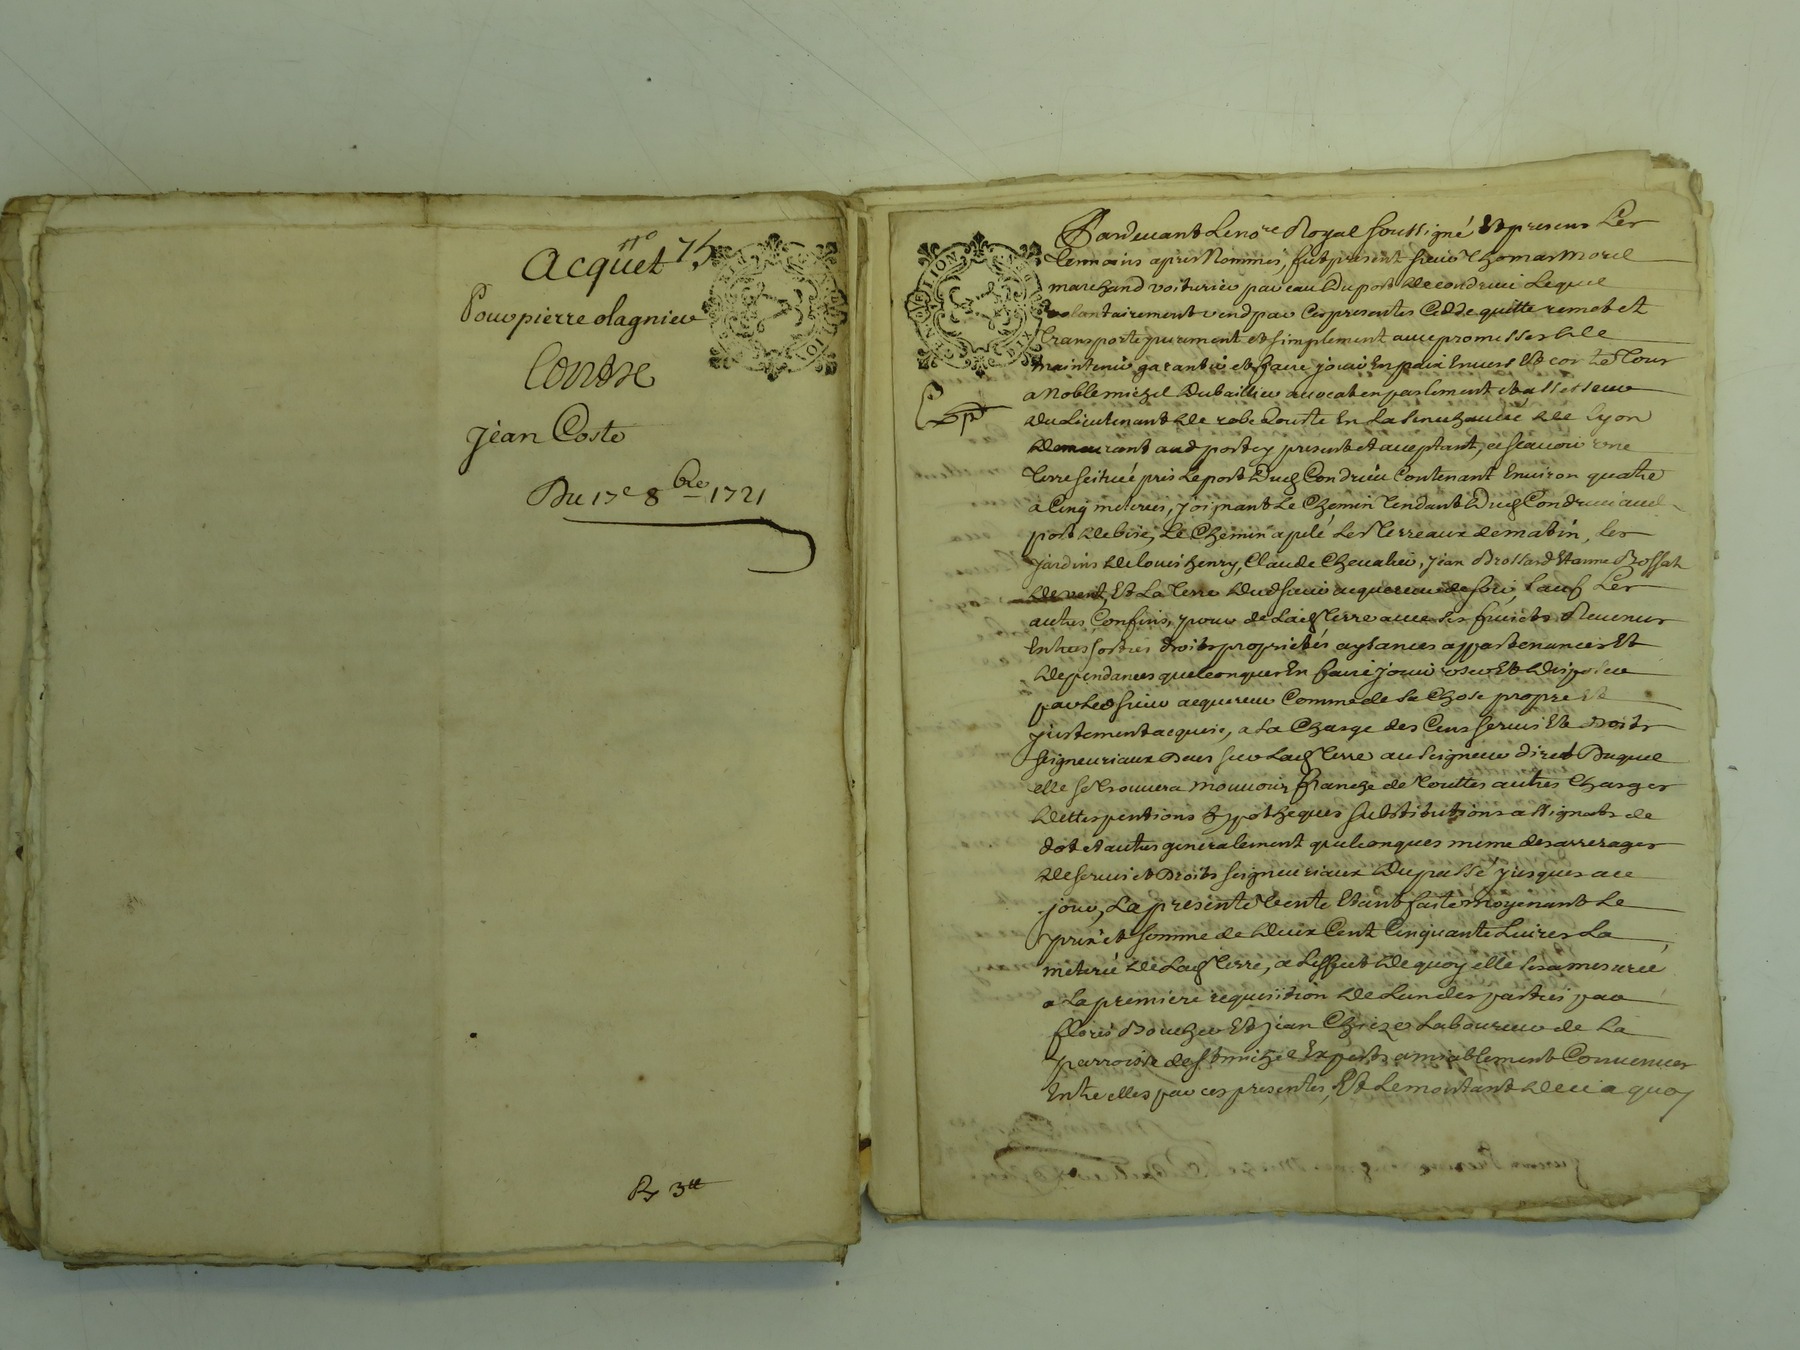 n° 75
Acquet
Pour pierre olagnier
Contre
Jean Coste
Du 17e 8bre 1721
Rx 3tt
Pardevant Le nore Royal soussigné Et presens Les
temoins apres Nommés, fut present sieur Thomas Morel
marchand voiturier par eau du port de condrieu Lequel
volontairement vend par Ces presentes Cedde quitte remet et
transporte purement et simplement avec promesses de
maintenir garantir et faire jouir En paix Envers Et contre Tous
a Noble michel Dubaillier avocat en parlement et assesseur
du Lieutenant de robe Courte En La senechaussé de Lyon
demeurant aud port cy present et acceptant, a scavoir une
Terre scituée pres Le port dud Condrieu Contenant Environ quatre
a Cinq meterées, joignant Le Chemin Tendant dud Condrieu aud
port de bise, Le Chemin apelé Les Terreaux de matin, Les
jardins de Louis henry, Claude Chevalier, Jean Brossard Et anne Brossat
de vent, Et La Terre dud sieur acquereur de soir, sauf Les
autres Confins, pour de Lad Terre avec ses fruicts Revenus
Entrees sorties droits proprietés aysances appartenances Et
dependances quelconques En faire jouir user Et disposer
par Led sieur acquereur Comme de sa Chose propre Et
justement acquise, a La Charge des Cens servis Et droits
seigneuriaux Deus sur Lad Terre au seigneur direct Duquel
elle se trouvera mouvoir, franche de Touttes autres Charges
dettes pentions hypotheques substitutions assignats de
dot et autres generalement quelconques meme des arrerages
de servis et Droits seigneuriaux du passé jusques a ce
jour, La presente Vente Etant faite Moyenant Le
prix et somme de deux Cent Cinquante Livres La
meterée de Lad Terre, a Leffect de quoy elle sera mesurée
a La premiere requisition de Lun des parties par
Floris Boucher Et jean Laboureur de La
parroisse de St michel Experts amiablement Convenues
Entre elles par ces presentes, Et Le montant de ce a quoy